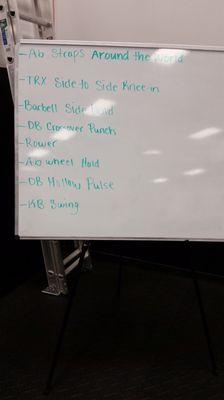 - Ab Straps Around the World
- TRX Side to Side Knee-in
- Barbell Side Bend
- DB Crossover Punch
- Rower
- Ab wheel Hold
- DB Hollow Pulse
- KB Swing